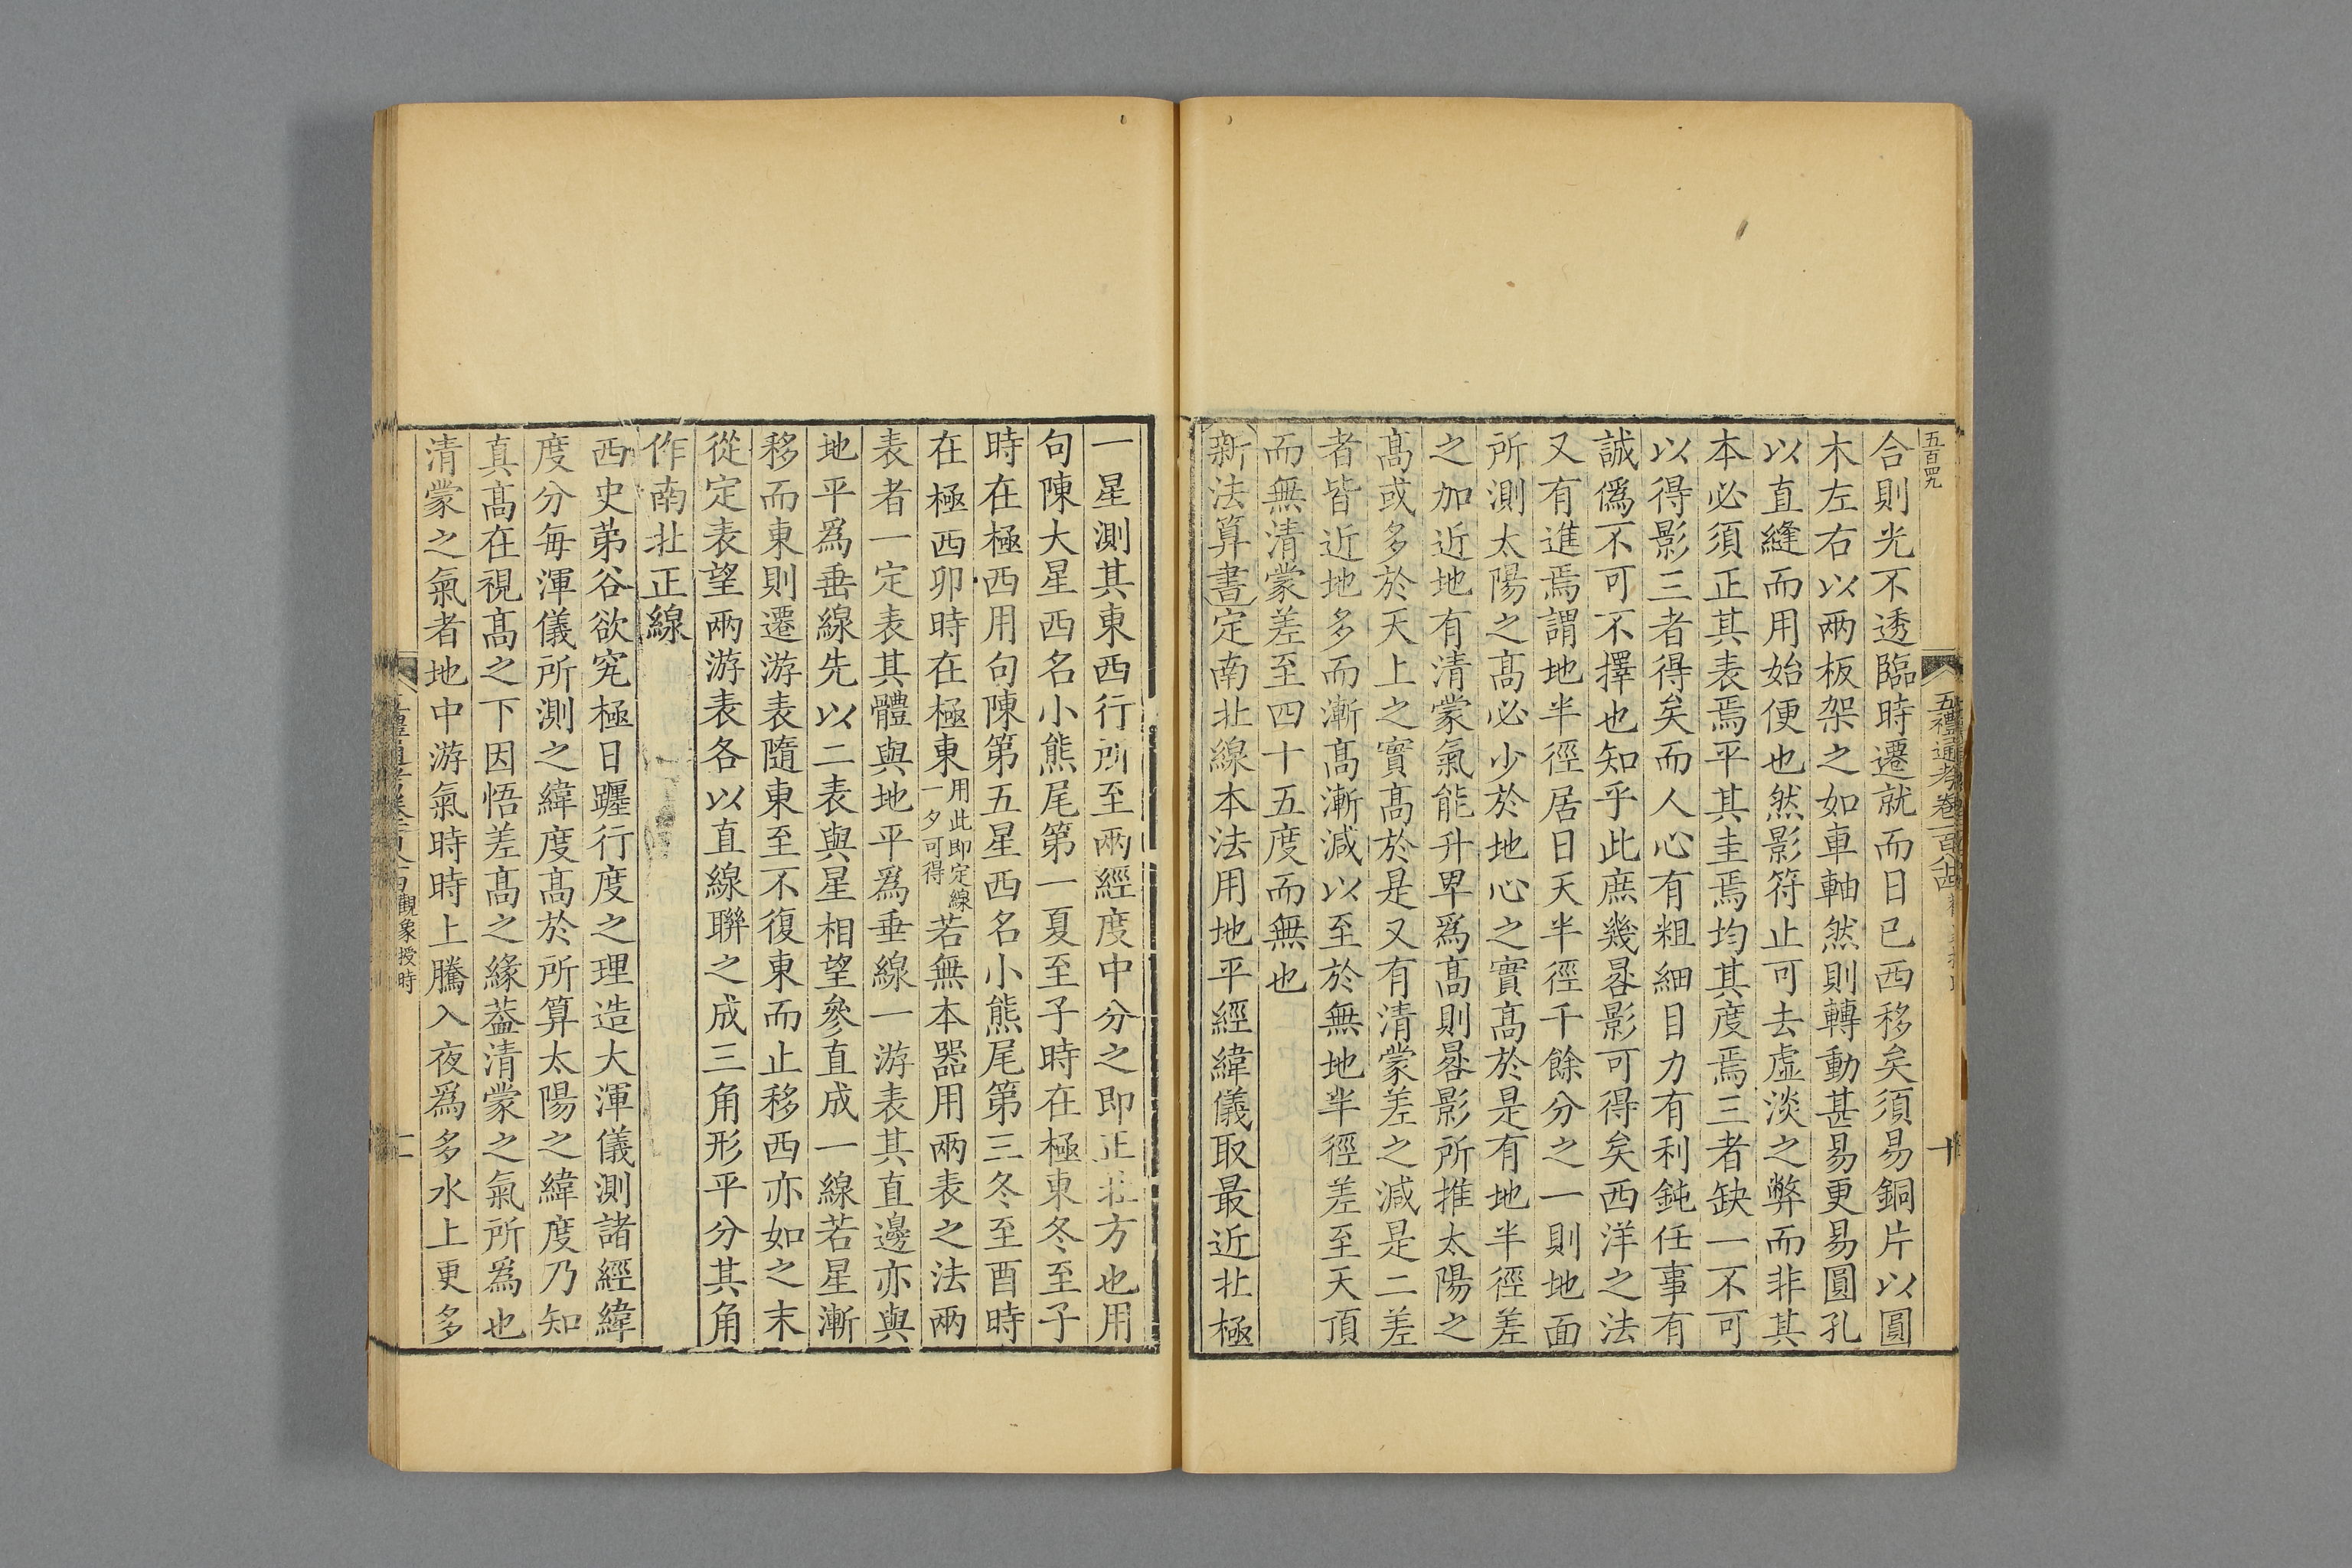 五百四九
五禮通考卷一百八十四
十
合則光不透臨時遷就而日已西移矣須易銅片以圓
木左右以兩板架之如車軸然則轉動甚易更易圓孔
以直縫而用始便也然影符止可去虛淡之弊而非其
本必須正其表焉平其圭焉均其度焉三者缺一不可
以得影三者得矣而人心有粗細目力有利鈍任事有
誠僞不可不擇也知乎此庶幾晷影可得矣西洋之法
又有進焉謂地半徑居日天半徑千餘分之一則地面
所測太陽之高必少於地心之實高於是有地半徑差
之加近地有清蒙氣能升卑爲高則晷影所推太陽之
高或多於天上之實高於是又有清蒙差之減是二差
者皆近地多而漸高漸減以至於無地半徑差至天頂
而無清蒙差至四十五度而無也
新法算書定南北線本法用地平經緯儀取最近北極
一星測其東西行所至兩經度中分之即正北方也用
句陳大星西名小熊尾第一夏至子時在極東冬至子
時在極西用句陳第五星西名小熊尾第三冬至酉時
在極西卯時在極東用此即定線一夕可得若無本器用兩表之法兩
表者一定表其體與地平爲垂線一游表其直邊亦與
地平爲垂線先以二表與星相望參直成一線若星漸
移而東則遷游表隨東至不復東而止移西亦如之末
從定表望兩游表各以直線聯之成三角形平分其角
作南北正線
西史第谷欲究極日躔行度之理造大渾儀測諸經緯
度分每渾儀所測之緯度高於所算太陽之緯度乃知
真高在視高之下因悟差高之緣蓋清蒙之氣所爲也
清蒙之氣者地中游氣時時上騰入夜爲多水上更多
觀象授時